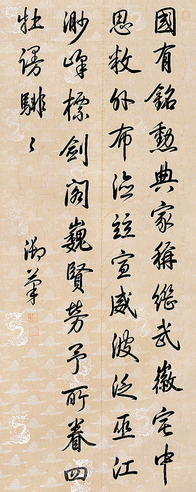 國有銘勳典家稱繼武徽宅中
思敉外布德竝宣威波泛巫江
渺峰標劍閣巍賢勞予所眷四
牡謌騑〻
御筆